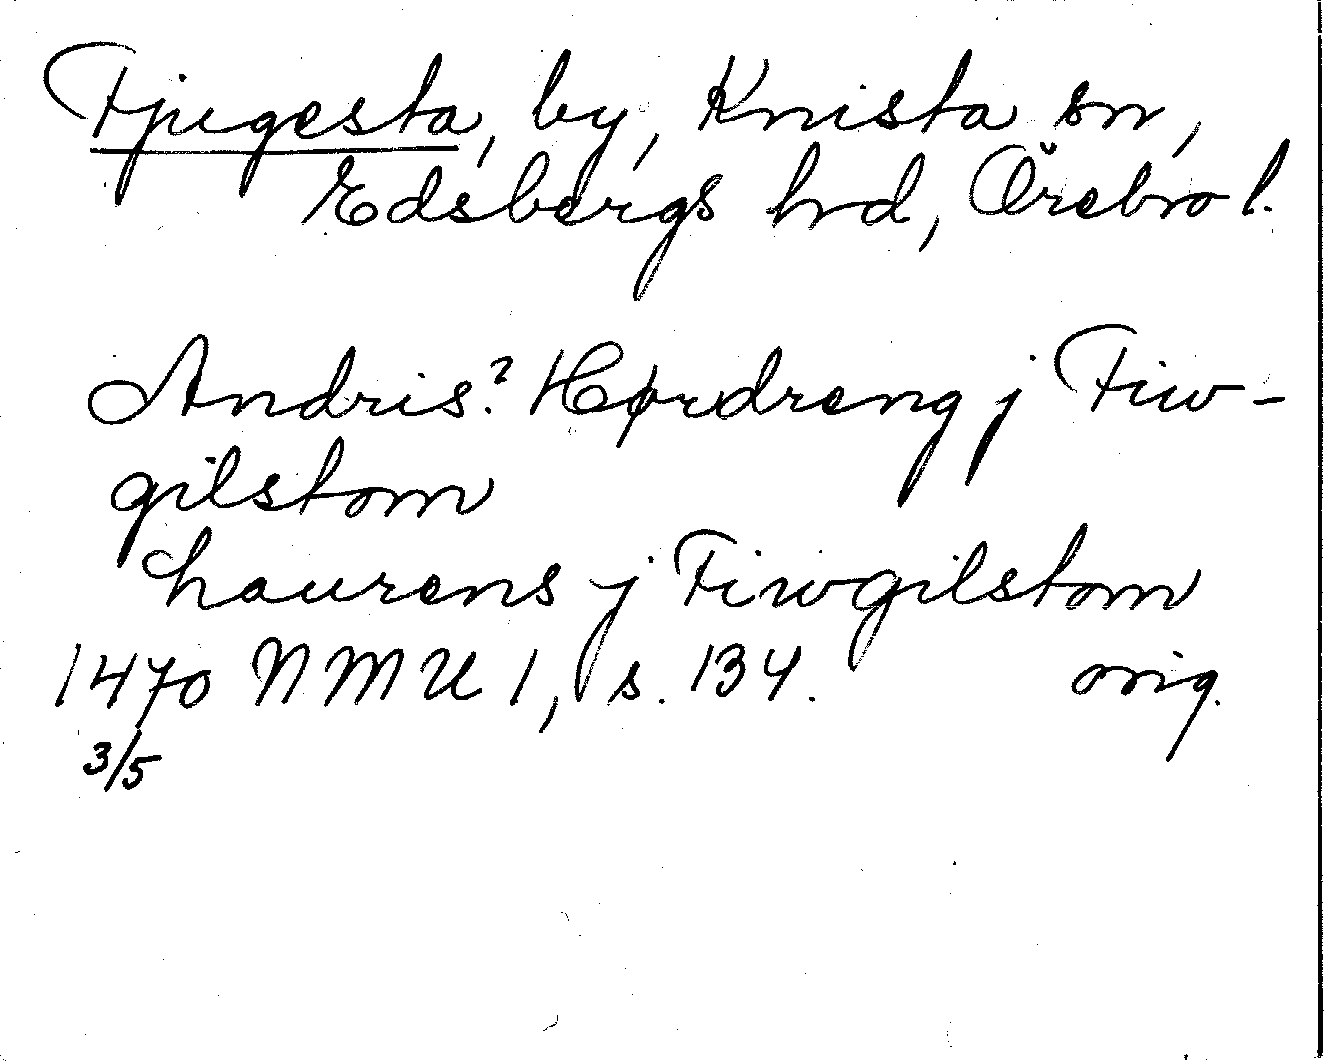 Fjugesta, by, Knista sn,
Edsbergs hrd, Örebro l.
Andris? Hørdreng j Fiw-
gilstom
Laurens j Fiwgilstom
1470 NMU 1, s. 134. orig.
3/5